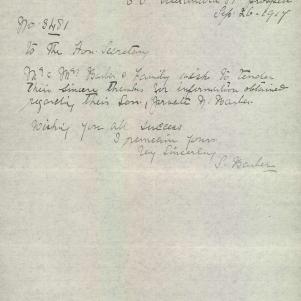 Alexandra St Prospect
Sep. 26 - 1917
No 3481
To The Hon. Secretary
Mr & Mrs Barber & Family wish to tender
their sincere thanks for information obtained
regarding their Son, Garnett N. Barber
Wishing you all success
I remain yours
Very Sincerely
S. Barber